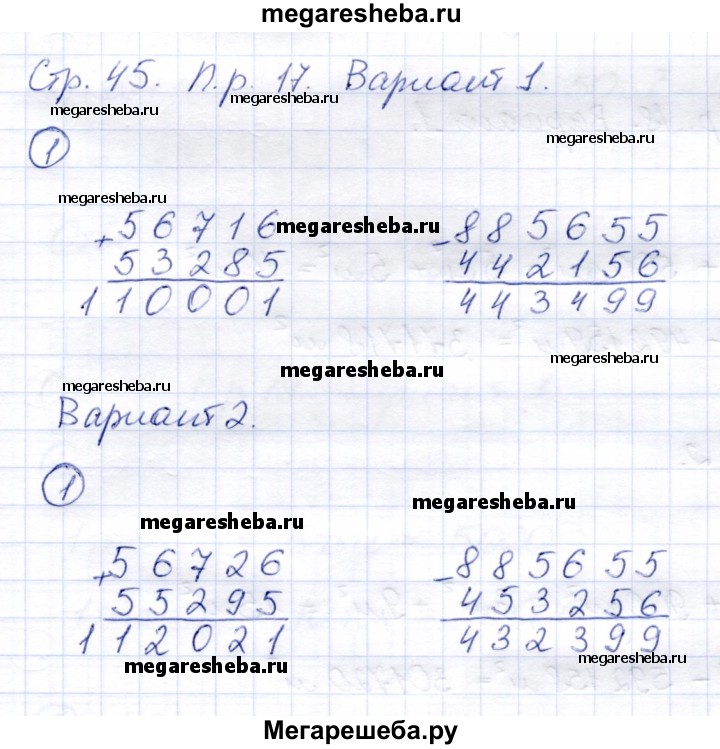 megaresheba.ru
Стр. 45. П.р. 17. Вариант 1.
megaresheba.ru megaresheba.ru
megaresheba.ru
1
megaresheba.ru
+56716 -885655
megaresheba.ru
53285 442156
110001 443499
megaresheba.ru
megaresheba.ru
megaresheba.ru
Вариант 2.
1
megaresheba.ru
megaresheba.ru
+56726 -885655
55295 453256
112021 432399
megaresheba.ru megaresheba.ru
Мегарешеба.ру